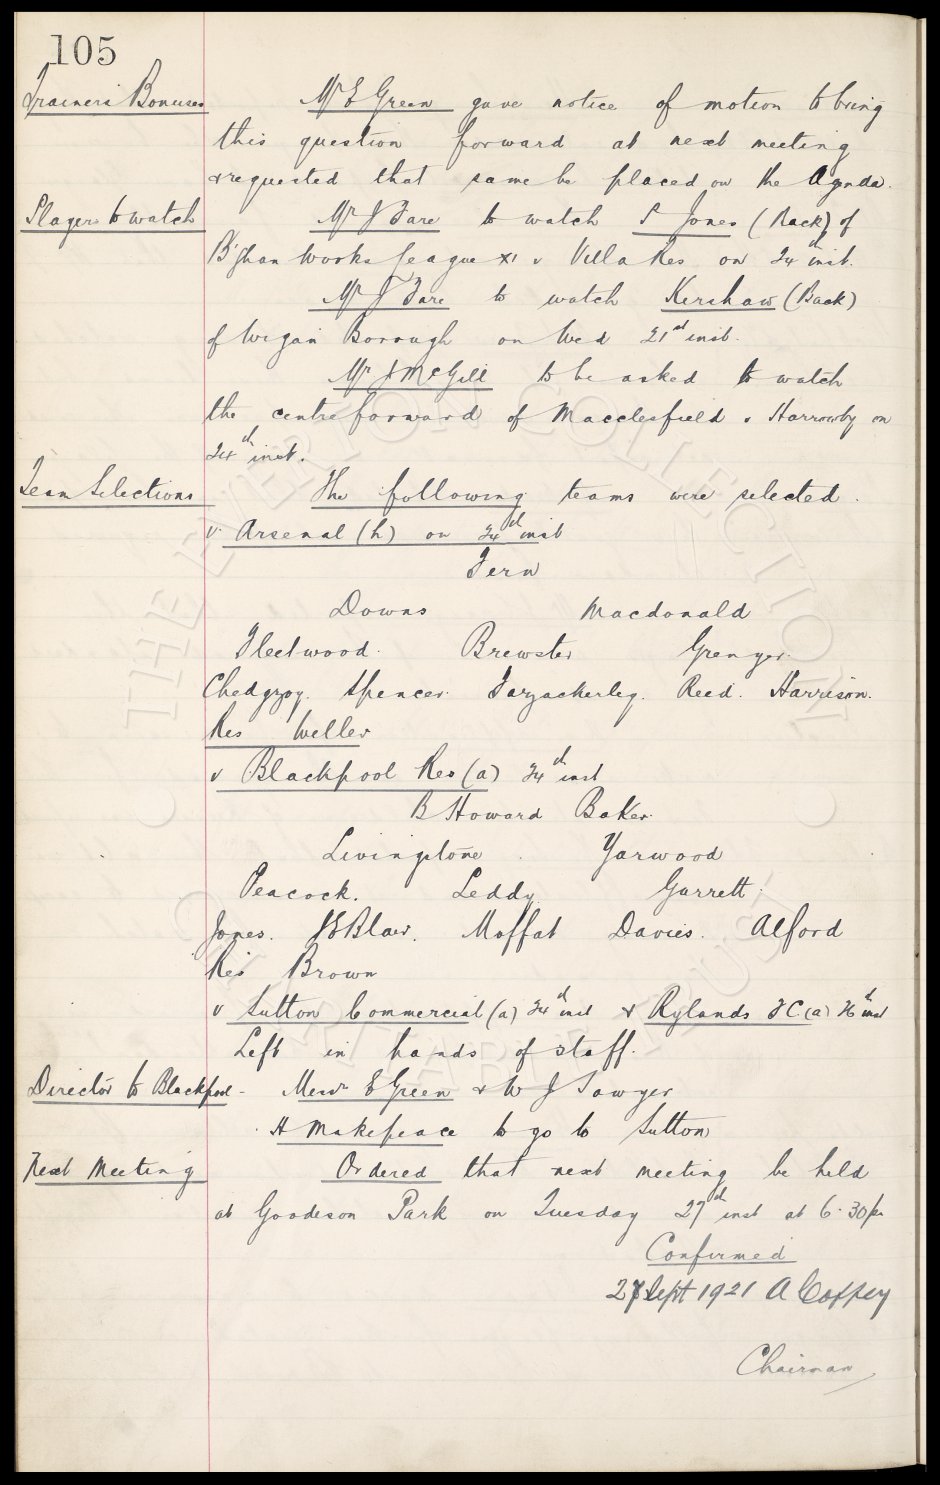 105
Trainers Bonuses Mr E Green gave notice of motion to bring
this question forward at next meeting
& requested that same be placed on the Agenda.
Players to watch Mr J Fare to watch S Jones (Back) of
B'gham Works League XI v Villa Res on 24th inst.
Mr J Fare to watch Kershaw (Back)
of Wigan Borough on Wed 21st inst.
Mr J McGill to be asked to watch
the centre forward of Macclesfield v Harrowby on
24th inst.
Team Selections The following teams were selected.
v Arsenal (h) on 24th inst
Fern
Downs Macdonald
Fleetwood. Brewster Grenyer.
Chedgzoy. Spencer. Fazackerley. Reed. Harrison.
Res Weller
v Blackpool Res (a) 24th inst
B Howard Baker.
Livingstone. Yarwood
Peacock. Leddy Garrett.
Jones. J E Blair. Moffat Davies. Alford
Res Brown
v Sutton Commercial (a) 24th inst & Rylands FC (a) 26th inst
Left in hands of staff.
Director to Blackpool - Messrs E Green & W J Sawyer
H Makepeace to go to Sutton
Next Meeting Ordered that next meeting be held
at Goodison Park on Tuesday 27th inst at 6.30pm
Confirmed
27 Sept 1921 A Coffey
Chairman
THE EVERTON COLLECTION
CHARITABLE TRUST